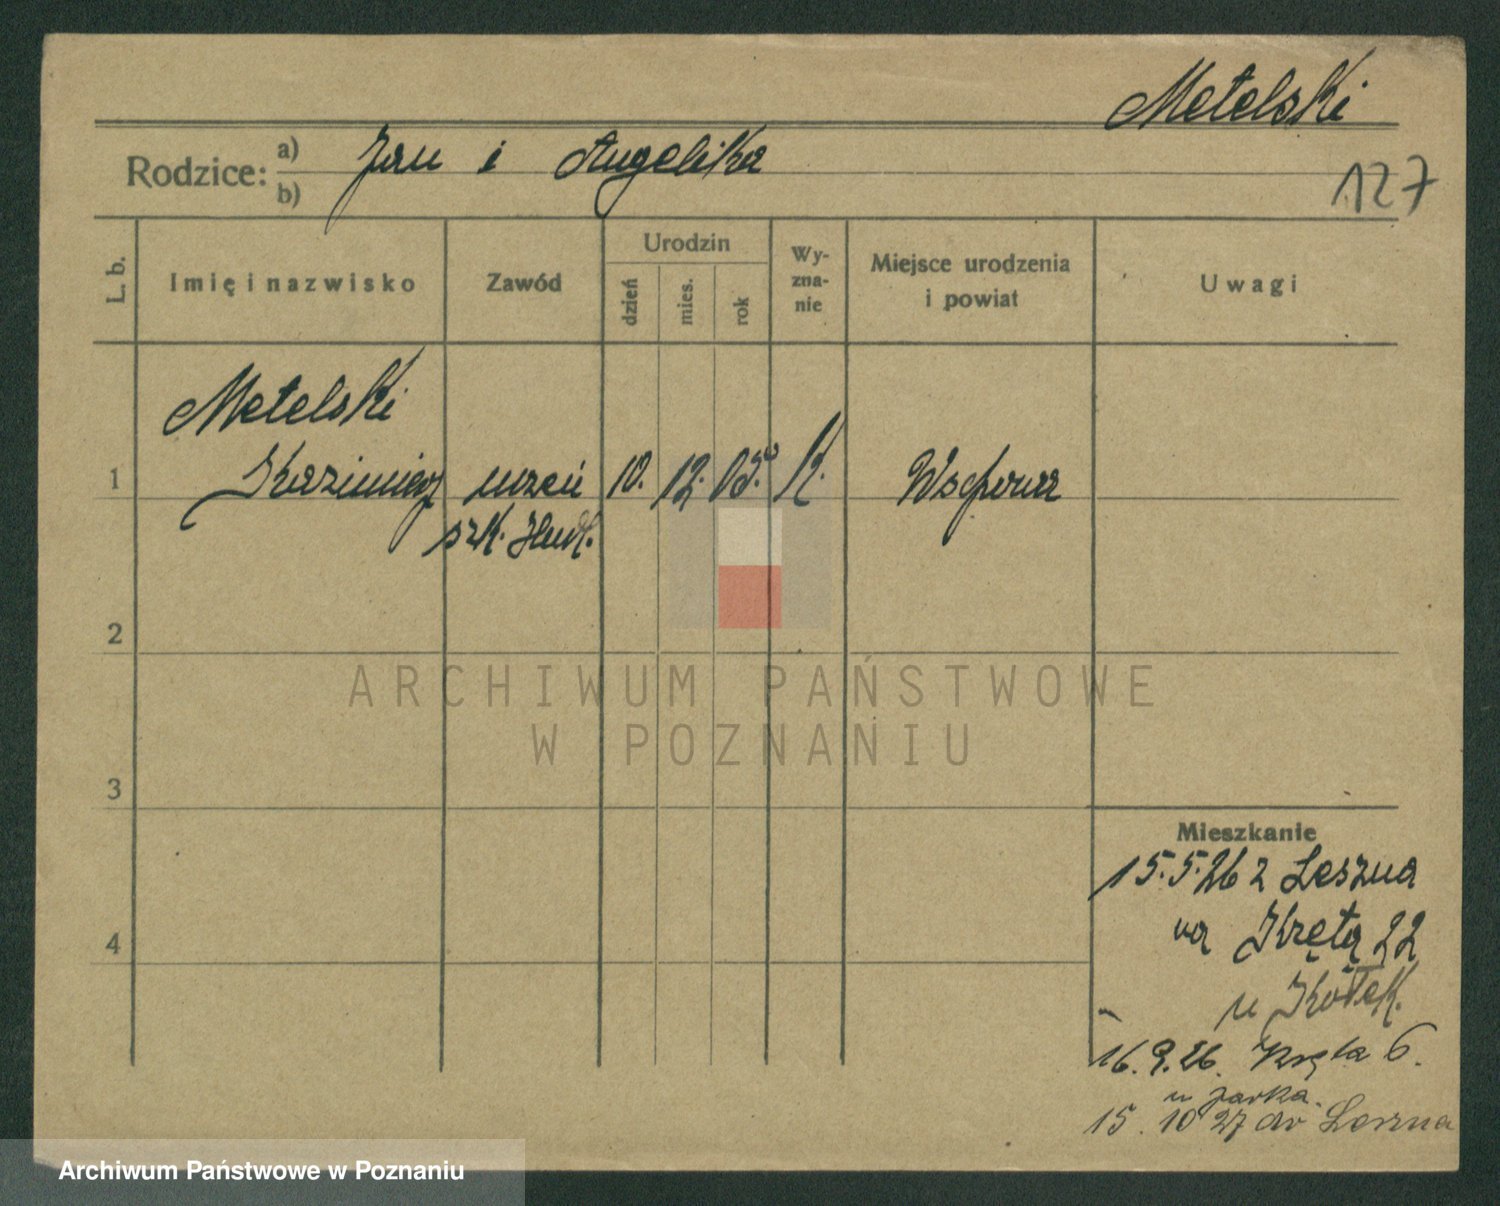 Metelski
Rodzice: a) b) Jan i Angelika
127
L. b.
Imię i nazwisko
Zawód
Urodzin
dzień
mies.
rok
Wy-
zna-
nie
Miejsce urodzenia
i powiat
Uwagi
Metelski
1 Kazimierz uczeń 10. 12. 05. K. Wschowa
szk. Handl.
2
ARCHIWUM PAŃSTWOWE
W POZNANIU
3
Mieszkanie
15.5.26 z Leszna
na Krętą 22
4
u Kołek.
16.9.26. Kręta 6.
u Jarka.
15. 10 27 do Leszna
Archiwum Państwowe w Poznaniu